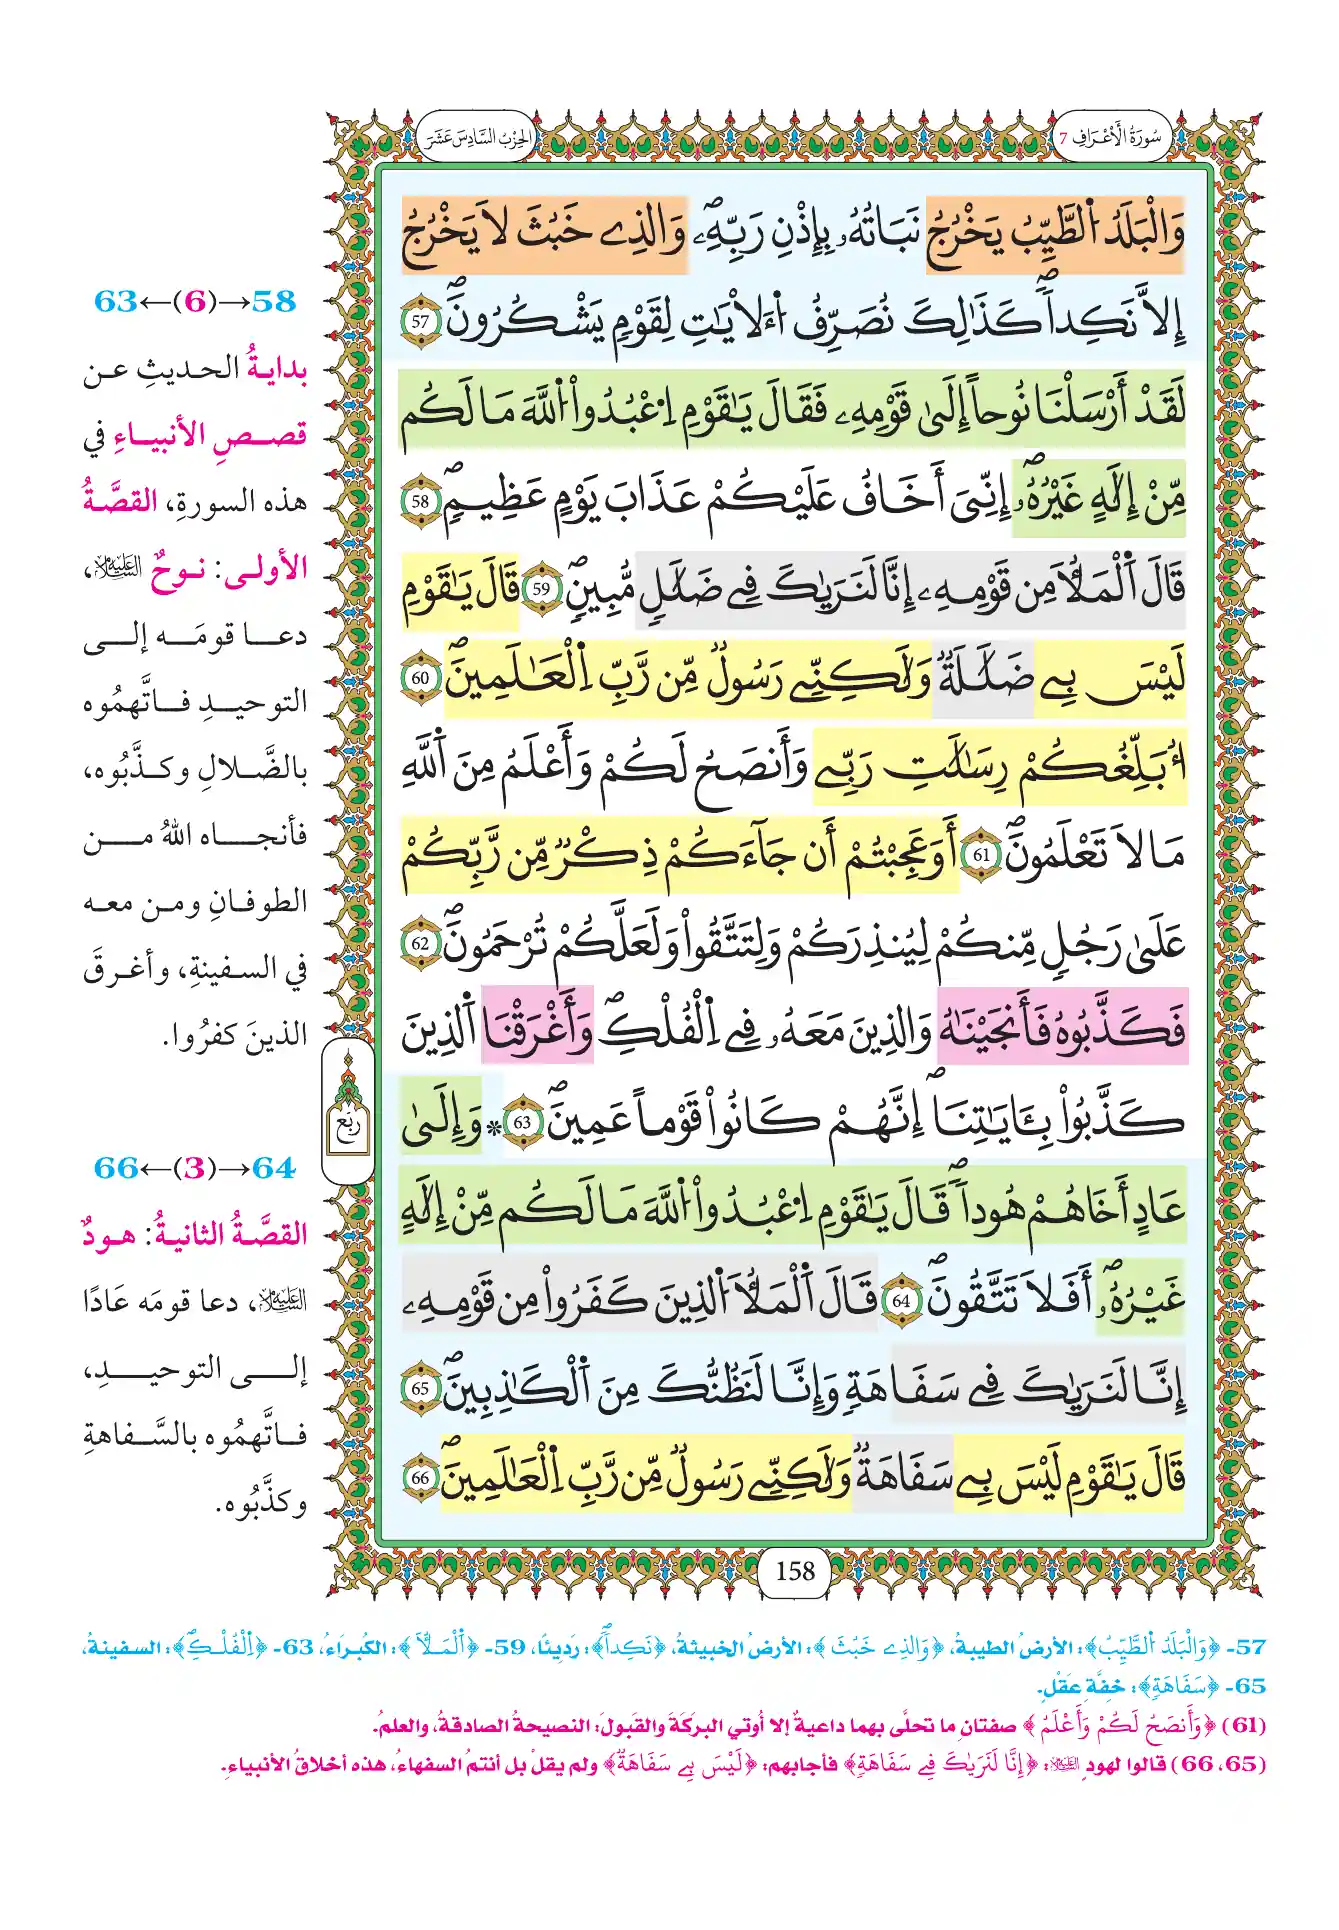 سُورَةُ الْأَعْرَافِ 7
الحِزْبُ السَّادِسَ عَشَرَ
وَالْبَلَدُ اُ۬لطَّيِّبُ يَخْرُجُ نَبَاتُهُۥ بِإِذْنِ رَبِّهِۦۖ وَالذِے خَبُثَ لَا يَخْرُجُ
إِلَّا نَكِداٗۖ كَذَٰلِكَ نُصَرِّفُ اُ۬لَايَٰتِ لِقَوْمٖ يَشْكُرُونَۖ 57
لَقَدْ أَرْسَلْنَا نُوحاً إِلَىٰ قَوْمِهِۦ فَقَالَ يَٰقَوْمِ اِ۟عْبُدُواْ اُ۬للَّهَ مَا لَكُم
مِّنْ إِلَٰهٍ غَيْرُهُۥۖ إِنِّيَ أَخَافُ عَلَيْكُمْ عَذَابَ يَوْمٍ عَظِيمٖۖ 58
قَالَ اَ۬لْمَلَأُ مِن قَوْمِهِۦ إِنَّا لَنَرَيٰكَ فِے ضَلَٰلٖ مُّبِينٖۖ 59 قَالَ يَٰقَوْمِ
لَيْسَ بِے ضَلَٰلَةٞ وَلَٰكِنِّے رَسُولٞ مِّن رَّبِّ اِ۬لْعَٰلَمِينَۖ 60
أُبَلِّغُكُمْ رِسَٰلَٰتِ رَبِّے وَأَنصَحُ لَكُمْ وَأَعْلَمُ مِنَ اَ۬للَّهِ
مَا لَا تَعْلَمُونَۖ 61 أَوَعَجِبْتُمْ أَن جَآءَكُمْ ذِكْرٞ مِّن رَّبِّكُمْ
عَلَىٰ رَجُلٖ مِّنكُمْ لِيُنذِرَكُمْ وَلِتَتَّقُواْ وَلَعَلَّكُمْ تُرْحَمُونَۖ 62
فَكَذَّبُوهُ فَأَنجَيْنَٰهُ وَالذِينَ مَعَهُۥ فِے اِ۬لْفُلْكِۖ وَأَغْرَقْنَا اَ۬لذِينَ
كَذَّبُواْ بِـَٔايَٰتِنَاۖ إِنَّهُمْ كَانُواْ قَوْماً عَمِينَۖ 63 * وَإِلَىٰ
عَادٍ أَخَاهُمْ هُوداٗۖ قَالَ يَٰقَوْمِ اِ۟عْبُدُواْ اُ۬للَّهَ مَا لَكُم مِّنْ إِلَٰهٍ
غَيْرُهُۥۖ أَفَلَا تَتَّقُونَۖ 64 قَالَ اَ۬لْمَلَأُ اُ۬لذِينَ كَفَرُواْ مِن قَوْمِهِۦ
إِنَّا لَنَرَيٰكَ فِے سَفَاهَةٖ وَإِنَّا لَنَظُنُّكَ مِنَ اَ۬لْكَٰذِبِينَۖ 65
قَالَ يَٰقَوْمِ لَيْسَ بِے سَفَاهَةٞ وَلَٰكِنِّے رَسُولٞ مِّن رَّبِّ اِ۬لْعَٰلَمِينَۖ 66
58→(6)←63
بدايةُ الحديثِ عن
قصصِ الأنبياءِ في
هذه السورةِ، القصَّةُ
الأولى: نوحٌ عليه السلام،
دعا قومَه إلى
التوحيدِ فاتَّهمُوه
بالضَّلالِ وكذَّبُوه،
فأنجاه اللهُ من
الطوفانِ ومن معه
في السفينةِ، وأغرقَ
الذينَ كفرُوا.
ربع
64→(3)←66
القصَّةُ الثانيةُ: هودٌ
عليه السلام، دعا قومَه عَادًا
إلى التوحيدِ،
فاتَّهمُوه بالسَّفاهةِ
وكذَّبُوه.
158
57- ﴿وَالْبَلَدُ اُ۬لطَّيِّبُ﴾: الأرضُ الطيبةُ، ﴿وَالذِے خَبُثَ﴾: الأرضُ الخبيثةُ، ﴿نَكِداٗۖ﴾: رَدِيئًا، 59- ﴿اَ۬لْمَلَأُ﴾: الكُبراءُ، 63- ﴿اِ۬لْفُلْكِۖ﴾: السفينةُ،
65- ﴿سَفَاهَةٖ﴾: خفَّةِ عَقْلٍ.
(61) ﴿وَأَنصَحُ لَكُمْ وَأَعْلَمُ﴾ صفتانِ ما تحلَّى بهما داعيةٌ إلا أُوتي البركَةَ والقَبولَ: النصيحةُ الصادقةُ، والعلمُ.
(65، 66) قالوا لهودٍ عليه السلام: ﴿إِنَّا لَنَرَيٰكَ فِے سَفَاهَةٖ﴾ فأجابهم: ﴿لَيْسَ بِے سَفَاهَةٞ﴾ ولم يقلْ بل أنتمُ السفهاءُ، هذه أخلاقُ الأنبياءِ.